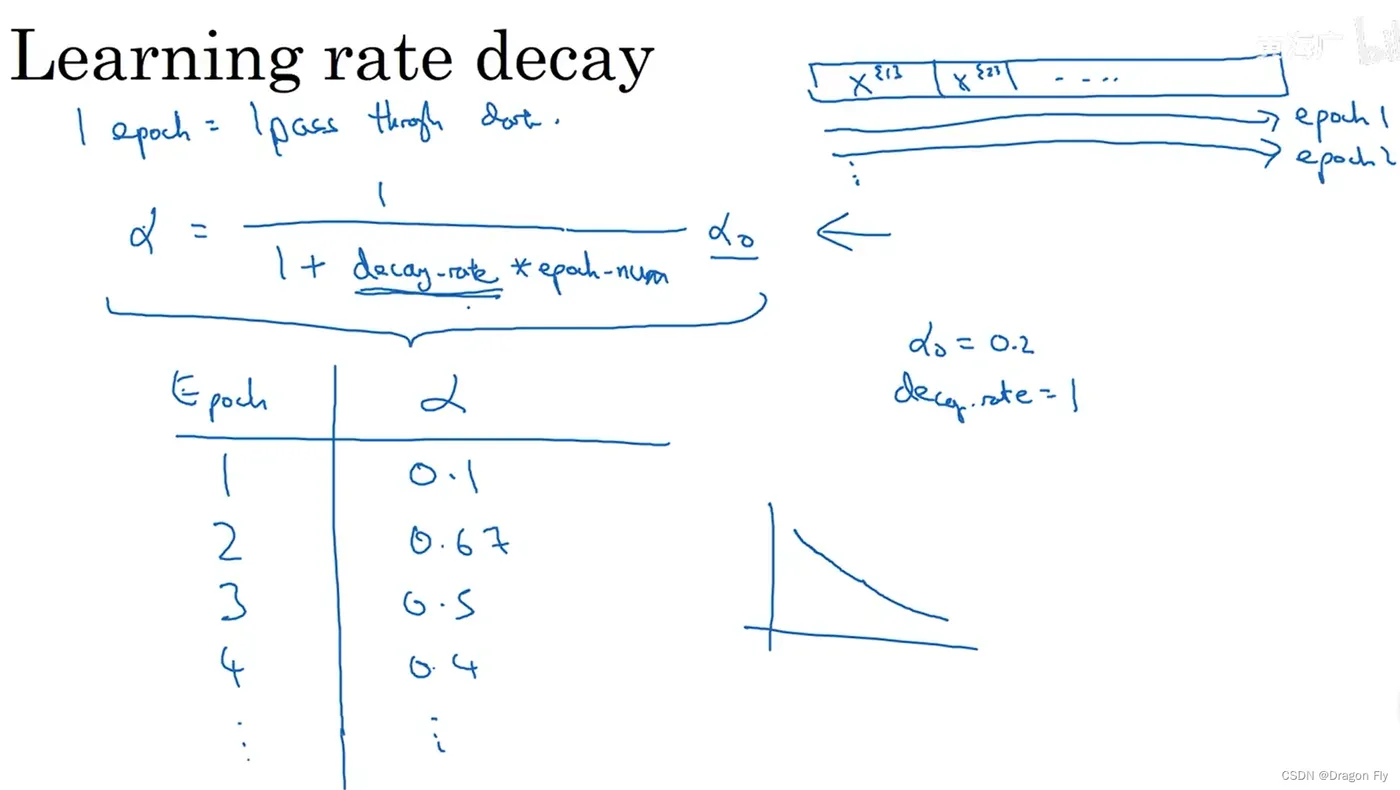 Learning rate decay
1 epoch = 1 pass through data.
X{1} X{2} ....
epoch 1
epoch 2
α = 1 / (1 + decay-rate * epoch-num) α₀
α₀ = 0.2
decay.rate = 1
Epoch α
1 0.1
2 0.67
3 0.5
4 0.4
CSDN @Dragon Fly